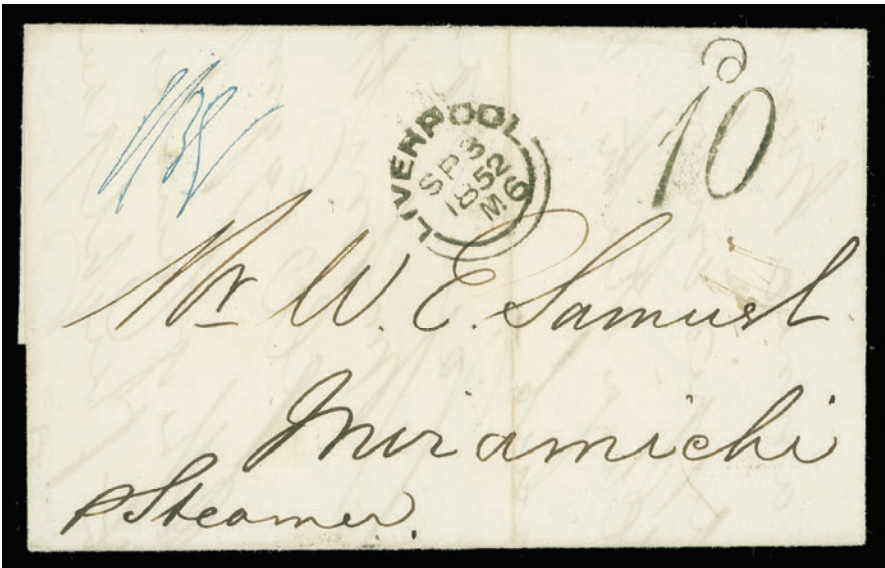 LIVERPOOL
SP 3
1852
M 6
10
Mr W. E. Samuel
Miramichi
p Steamer.